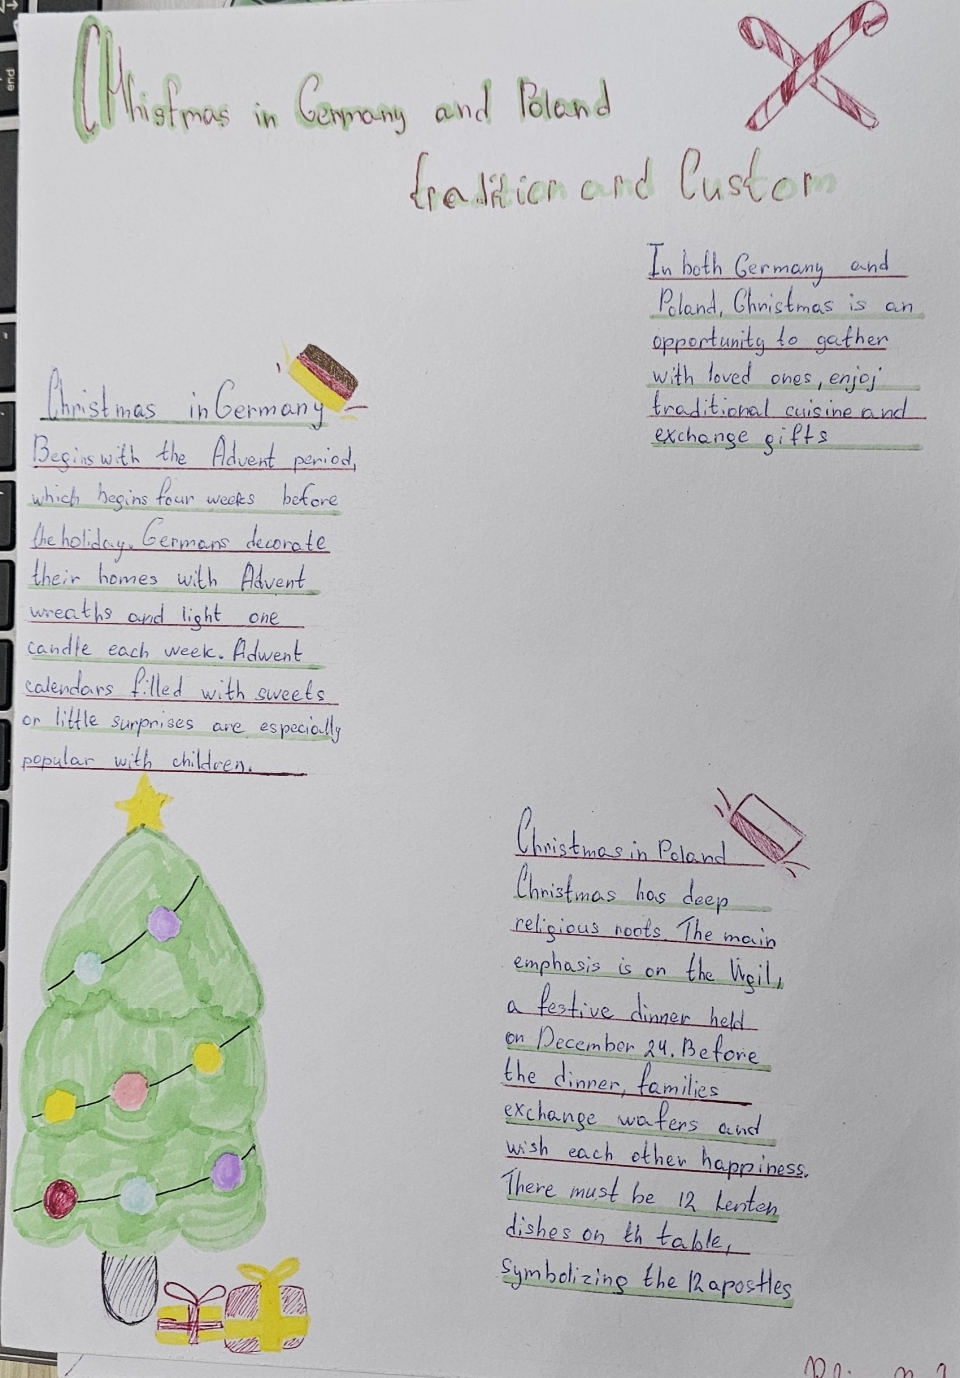 Christmas in Germany and Poland
tradition and Custom
In both Germany and
Poland, Christmas is an
opportunity to gather
with loved ones, enjoj
traditional cuisine and
exchange gifts
Christmas in Germany
Begins with the Advent period,
which begins four weeks before
the holiday. Germans decorate
their homes with Advent
wreaths and light one
candle each week. Adwent
calendars filled with sweets
or little surprises are especially
popular with children.
Christmas in Poland
Christmas has deep
religious roots. The main
emphasis is on the Vigil,
a festive dinner held
on December 24. Before
the dinner, families
exchange wafers and
wish each other happiness.
There must be 12 Lenten
dishes on th table,
symbolizing the 12 apostles
end